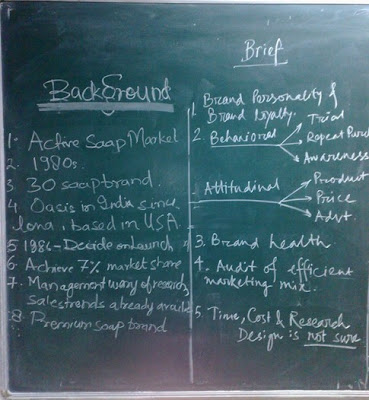 Background
1. Active Soap Market
2. 1980s
3. 30 soap brand.
4. Oasis in India since
long, based in U.S.A.
5 1986 - Decide on launch
6. Achieve 7% market share
7. Management wary of research
sales trends already
8. Premium soap brand
Brief
1. Brand Personality &
Brand Loyalty.
2. Behavioral
Trial
Repeat
Awareness
Attitudinal
Product
Price
Advt.
3. Brand health
4. Audit of efficient
marketing mix.
5. Time, Cost & Research
Design is not sure